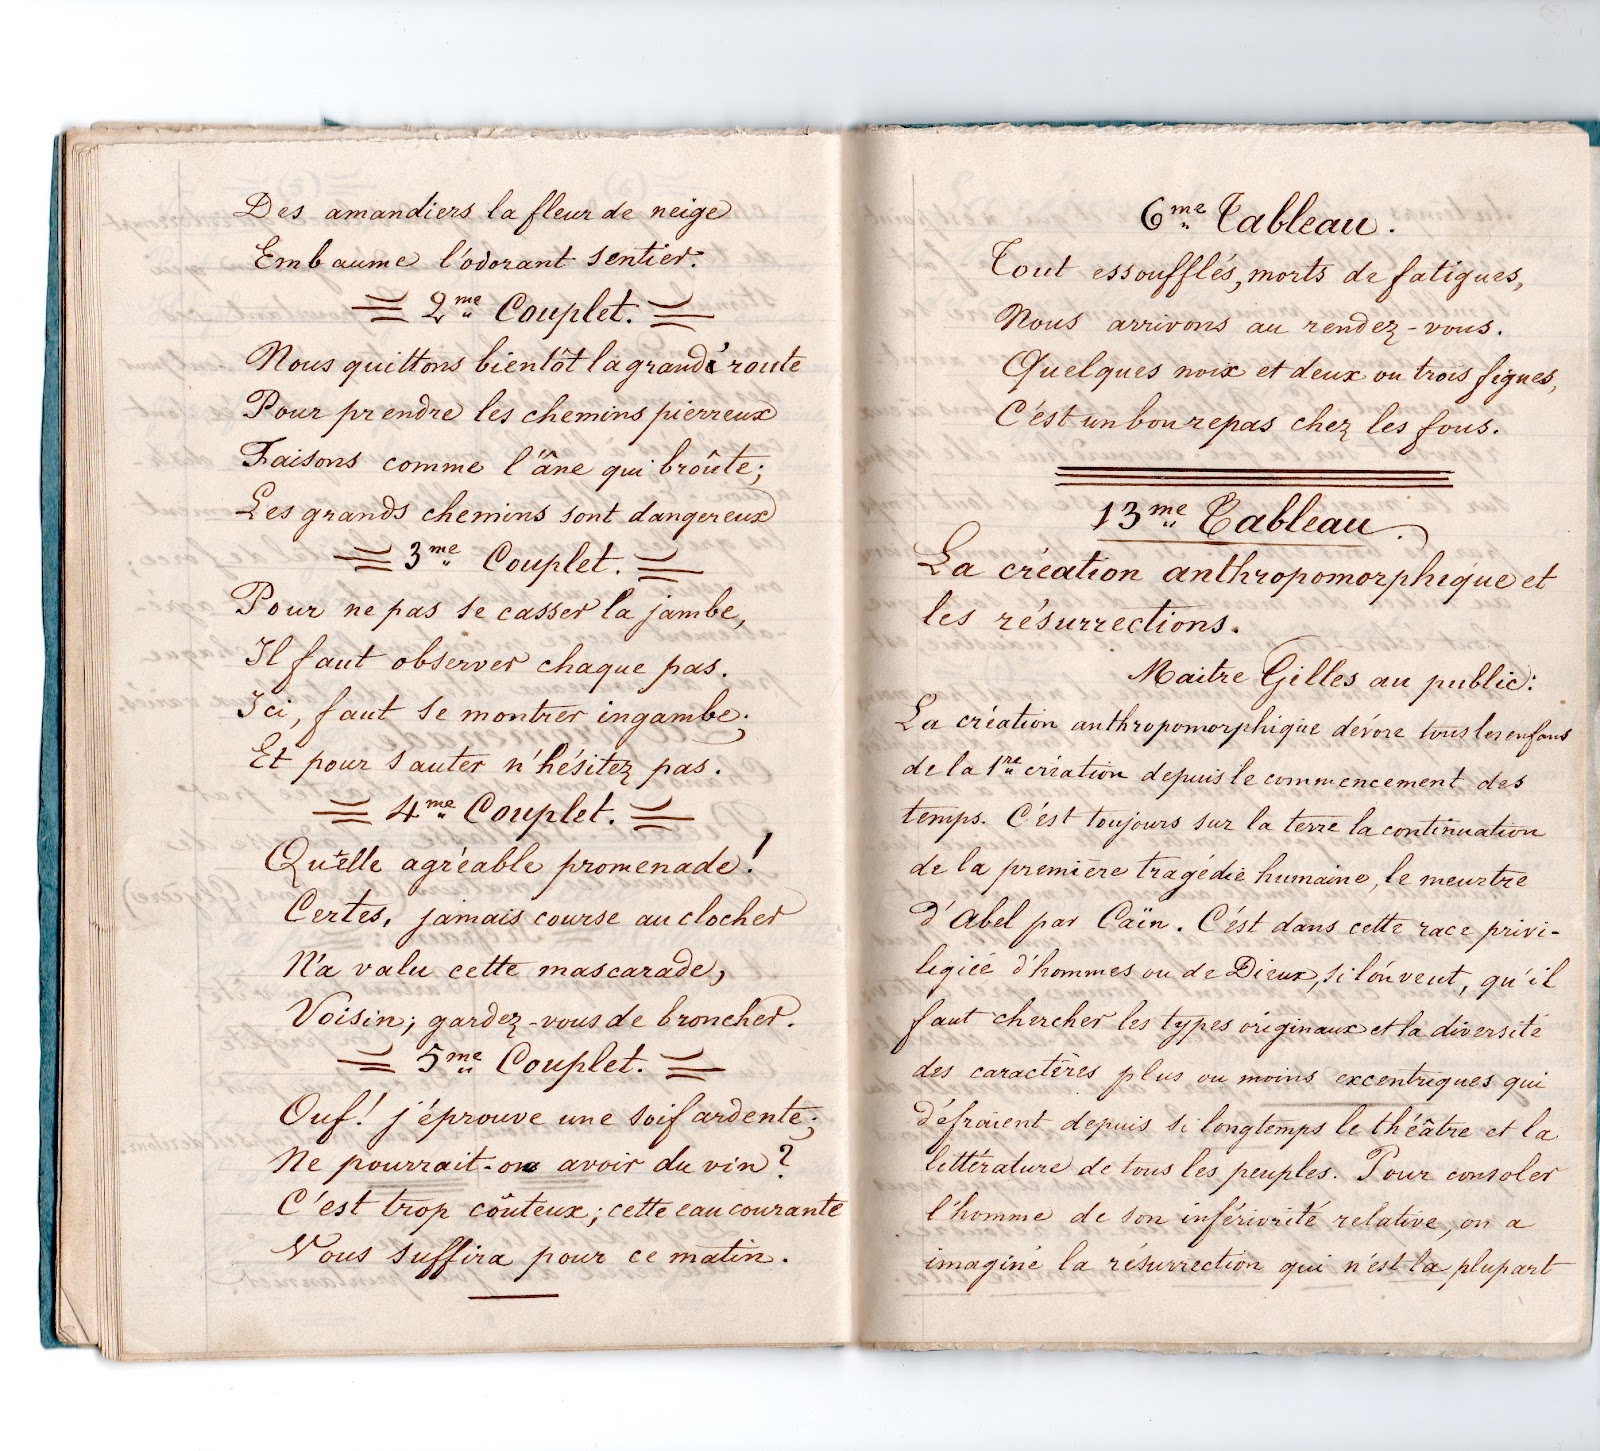 Des amandiers la fleur de neige
Embaume l'odorant sentier.
2me Couplet.
Nous quittons bientôt la grand' route
Pour prendre les chemins pierreux
Faisons comme l'âne qui broûte;
Les grands chemins sont dangereux
3me Couplet.
Pour ne pas se casser la jambe,
Il faut observer chaque pas.
Ici, faut se montrer ingambe;
Et pour sauter n'hésitez pas.
4me Couplet.
Quelle agréable promenade!
Certes, jamais course au clocher
N'a valu cette mascarade,
Voisin; gardez-vous de broncher.
5me Couplet.
Ouf! j'éprouve une soif ardente;
Ne pourrait-on avoir du vin?
C'est trop coûteux; cette eau courante
Vous suffira pour ce matin.
6me Tableau.
Tout essoufflés, morts de fatigues,
Nous arrivons au rendez-vous.
Quelques noix et deux ou trois figues,
C'est un bon repas chez les fous.
13me Tableau.
La création anthropomorphique et
les résurrections.
Maitre Gilles au public:
La création anthropomorphique dévore tous les enfans
de la 1re création depuis le commencement des
temps. C'est toujours sur la terre la continuation
de la première tragédie humaine, le meurtre
d'Abel par Caïn. C'est dans cette race privi-
ligiée d'hommes ou de Dieux, si l'on veut, qu'il
faut chercher les types originaux et la diversité
des caractères plus ou moins excentriques qui
défraient depuis si longtemps le théâtre et la
littérature de tous les peuples. Pour consoler
l'homme de son infériorité relative, on a
imaginé la résurrection qui n'est la plupart